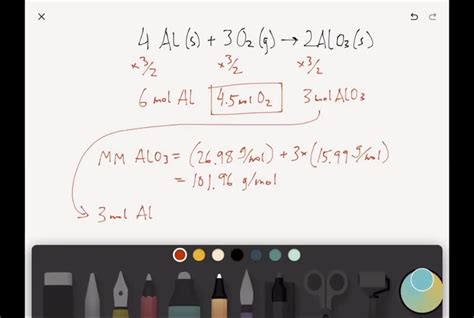 4 Al(s) + 3O₂(g) → 2AlO₃(s)
×3/2 ×3/2 ×3/2
6 mol Al 4.5 mol O₂ 3 mol AlO₃
MM AlO₃ = (26.98 g/mol) + 3×(15.99 g/mol)
= 101.96 g/mol
3 mol Al